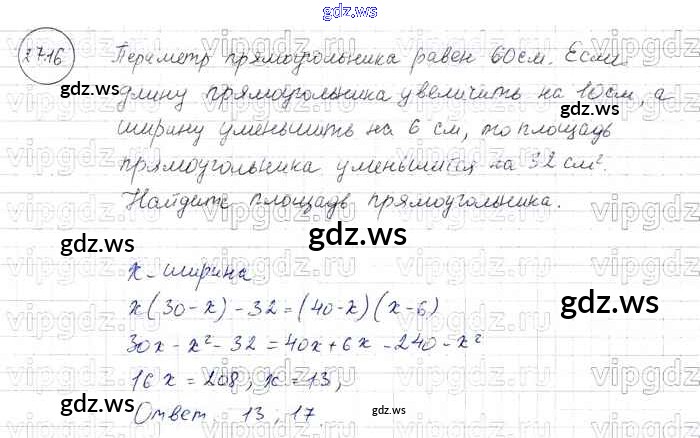 gdz.ws
27.16
Периметр прямоугольника равен 60см. Если
длину прямоугольника увеличить на 10см, а
ширину уменьшить на 6 см, то площадь
прямоугольника уменьшится на 32 см².
Найдите площадь прямоугольника.
x - ширина
x(30-x)-32=(40-x)(x-6)
30x-x²-32=40x+6x-240-x²
16x=208; x=13;
Ответ. 13; 17.
gdz.ws
gdz.ws
gdz.ws
gdz.ws
gdz.ws
gdz.ws
gdz.ws
gdz.ws